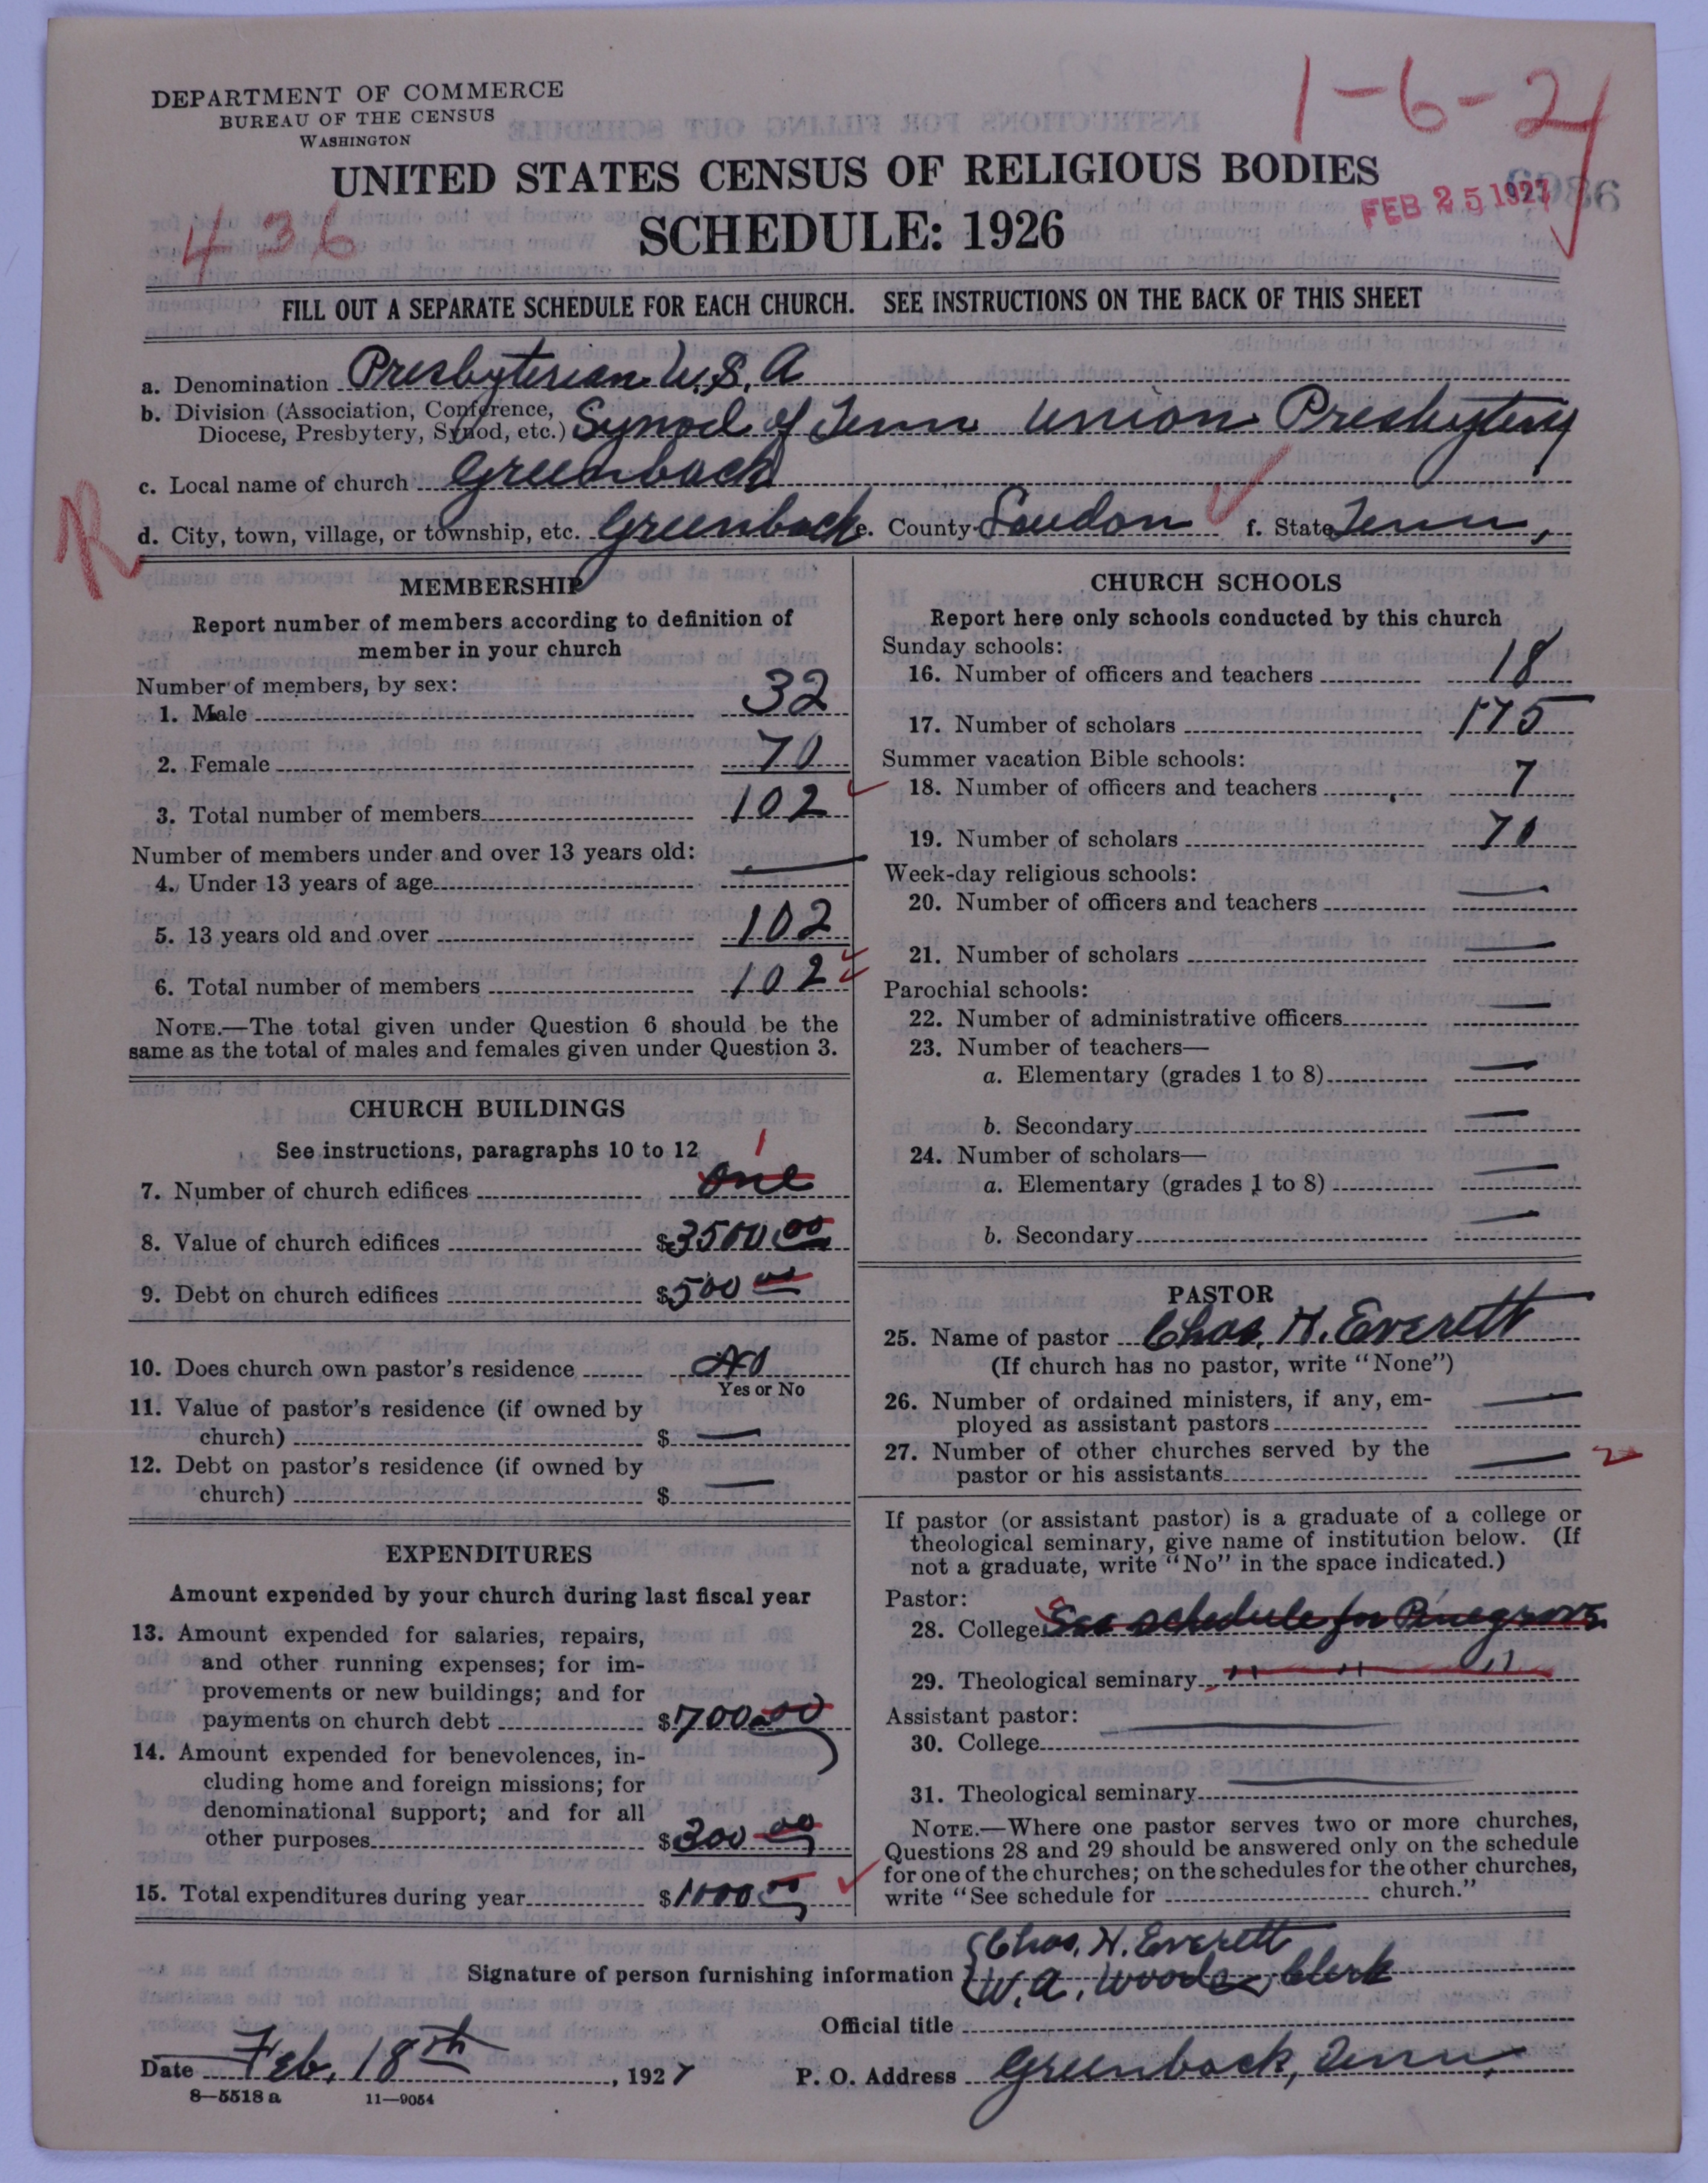 DEPARTMENT OF COMMERCE
BUREAU OF THE CENSUS
WASHINGTON
1-6-2
UNITED STATES CENSUS OF RELIGIOUS BODIES
SCHEDULE: 1926
436
FEB 25 1927
FILL OUT A SEPARATE SCHEDULE FOR EACH CHURCH. SEE INSTRUCTIONS ON THE BACK OF THIS SHEET
a. Denomination Presbyterian U.S.A
b. Division (Association, Conference, Diocese, Presbytery, Synod, etc.) Synod of Tenn Union Presbytery
c. Local name of church Greenback
R
d. City, town, village, or township, etc. Greenback e. County Loudon f. State Tenn,
MEMBERSHIP
Report number of members according to definition of
member in your church
Number of members, by sex:
1. Male 32
2. Female 70
3. Total number of members 102
Number of members under and over 13 years old:
4. Under 13 years of age —
5. 13 years old and over 102
6. Total number of members 102
NOTE.—The total given under Question 6 should be the
same as the total of males and females given under Question 3.
CHURCH BUILDINGS
See instructions, paragraphs 10 to 12
1
7. Number of church edifices One
8. Value of church edifices $3500.00
9. Debt on church edifices $500 00
10. Does church own pastor's residence No
Yes or No
11. Value of pastor's residence (if owned by
church) $ —
12. Debt on pastor's residence (if owned by
church) $ —
EXPENDITURES
Amount expended by your church during last fiscal year
13. Amount expended for salaries, repairs,
and other running expenses; for im-
provements or new buildings; and for
payments on church debt $700.00
14. Amount expended for benevolences, in-
cluding home and foreign missions; for
denominational support; and for all
other purposes $300 00
15. Total expenditures during year $1000 00
CHURCH SCHOOLS
Report here only schools conducted by this church
Sunday schools:
16. Number of officers and teachers 18
17. Number of scholars 175
Summer vacation Bible schools:
18. Number of officers and teachers 7
19. Number of scholars 70
Week-day religious schools:
20. Number of officers and teachers —
21. Number of scholars —
Parochial schools:
22. Number of administrative officers —
23. Number of teachers—
a. Elementary (grades 1 to 8) —
b. Secondary —
24. Number of scholars—
a. Elementary (grades 1 to 8) —
b. Secondary —
PASTOR
25. Name of pastor Chas. H. Everett
(If church has no pastor, write "None")
26. Number of ordained ministers, if any, em-
ployed as assistant pastors —
27. Number of other churches served by the
pastor or his assistants —
If pastor (or assistant pastor) is a graduate of a college or
theological seminary, give name of institution below. (If
not a graduate, write "No" in the space indicated.)
Pastor:
28. College See schedule for Pinegrove
29. Theological seminary " " "
Assistant pastor:
30. College —
31. Theological seminary —
NOTE.—Where one pastor serves two or more churches,
Questions 28 and 29 should be answered only on the schedule
for one of the churches; on the schedules for the other churches,
write "See schedule for church."
Chas. H. Everett
Signature of person furnishing information W.A. Woods, Clerk
Official title
Date Feb. 18th, 1927 P. O. Address Greenback, Tenn.
8—5518 a 11—9054